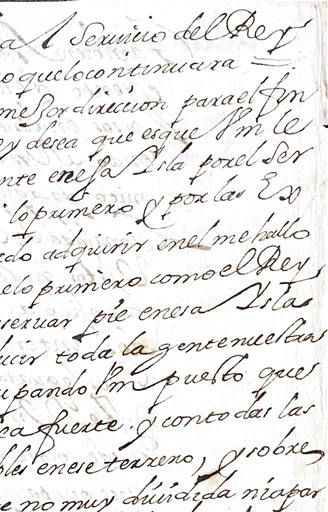 al Servicio del Rey
o que lo continuara =
mejor direcion para el fin
ey desea que es que Vm le
nte en esa Ysla por el Ser
lo primero y por las Ex
do adquirir en el me hallo
elo primero como el Rey
servar pie en esa Ysla
ucir toda la gente nuestra
upando Vm puesto que
ea fuerte y con todas las
bles en ese terreno, y sobre
e no muy dividida ni apar